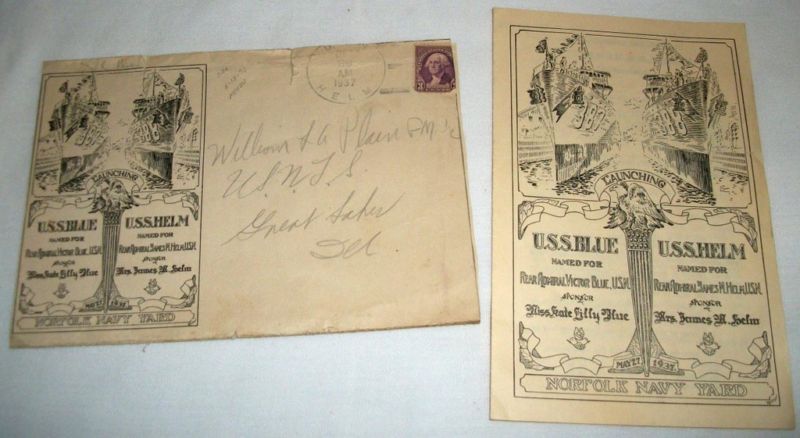 1937
HELM
3
387
388
LAUNCHING
U.S.S. BLUE
NAMED FOR
REAR ADMIRAL VICTOR BLUE, U.S.N.
SPONSOR
Miss Kate Lilly Blue
U.S.S. HELM
NAMED FOR
REAR ADMIRAL JAMES M. HELM, U.S.N.
SPONSOR
Mrs. James M. Helm
MAY 27, 1937
NORFOLK NAVY YARD
AM
William
Plain
U.S.N.T.S.
Great Lakes
387
388
LAUNCHING
U.S.S. BLUE
NAMED FOR
REAR ADMIRAL VICTOR BLUE, U.S.N.
SPONSOR
Miss Kate Lilly Blue
U.S.S. HELM
NAMED FOR
REAR ADMIRAL JAMES M. HELM, U.S.N.
SPONSOR
Mrs. James M. Helm
MAY 27, 1937
NORFOLK NAVY YARD